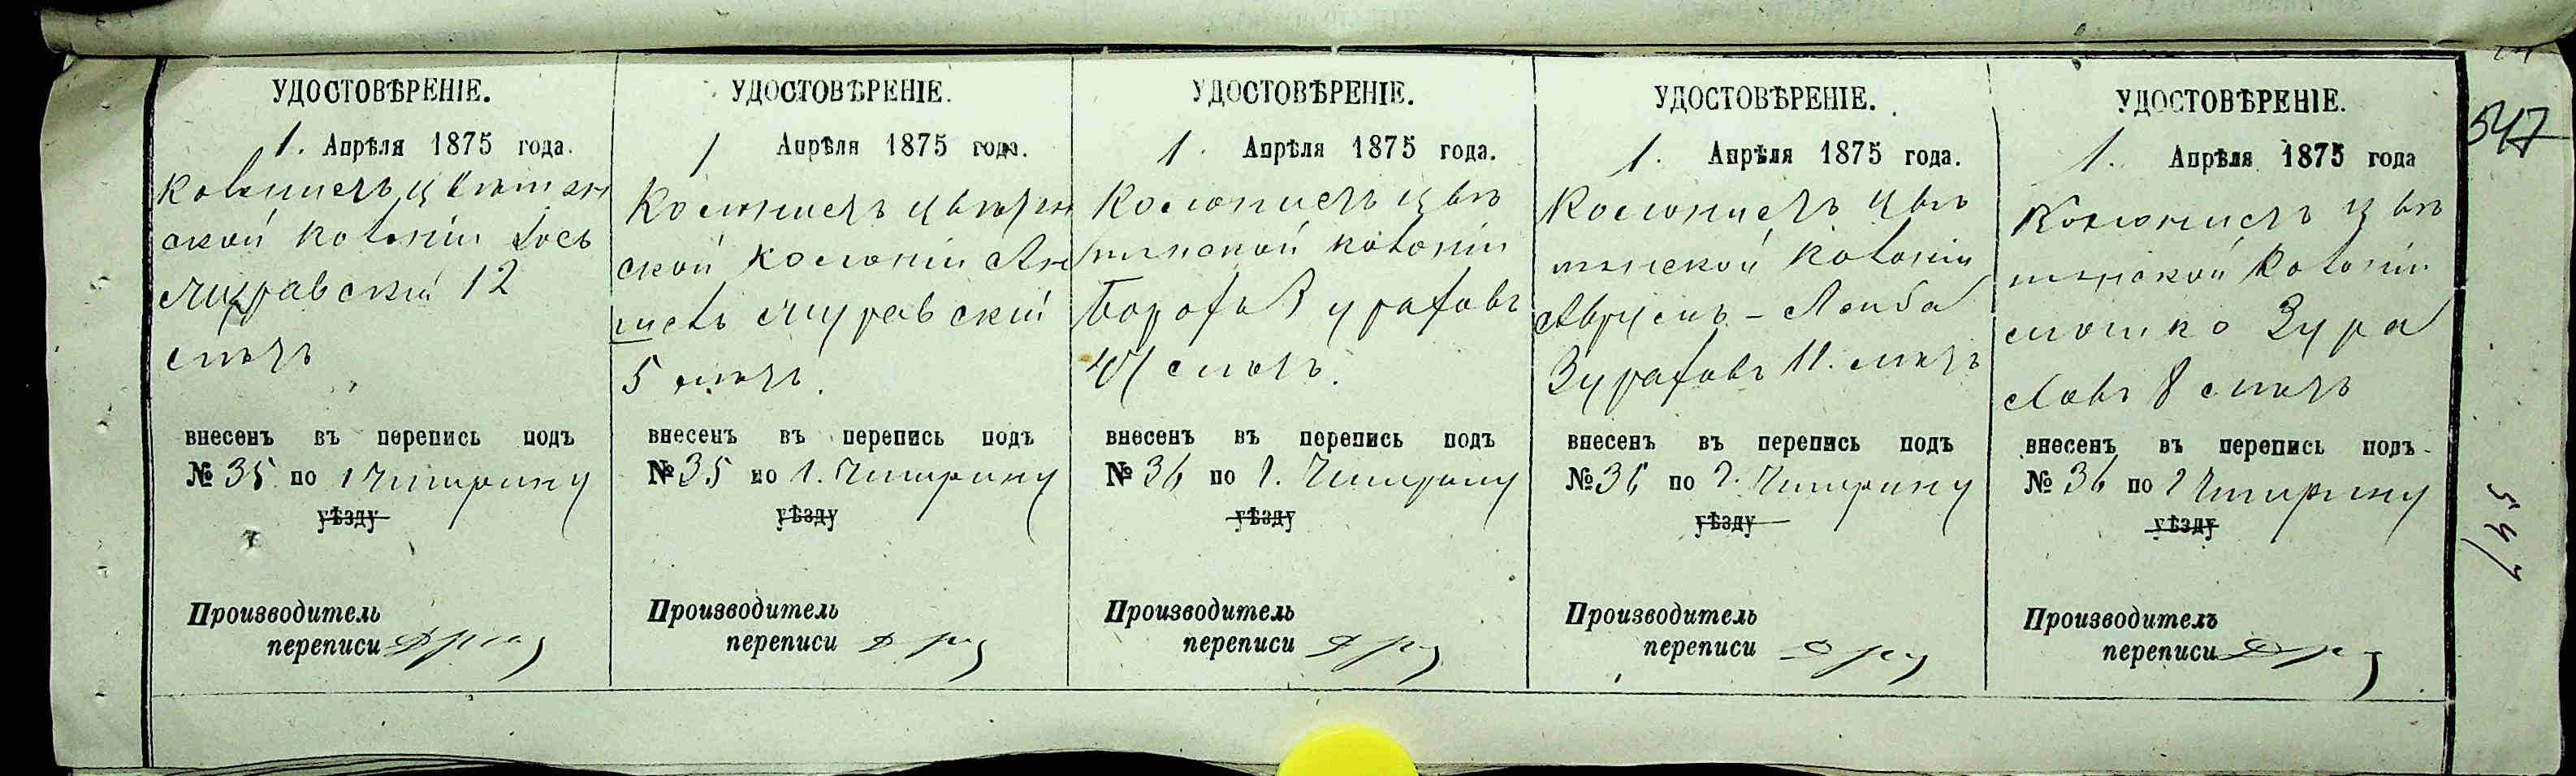 547
УДОСТОВѢРЕНІЕ.
1. Апрѣля 1875 года.
Колонистъ Цвѣтян
ской колоніи Іось
Муравскій 12
лѣтъ
внесенъ въ перепись подъ
№ 35 по г. Чигирину
уѣзду
Производитель
переписи
УДОСТОВѢРЕНІЕ.
1 Апрѣля 1875 года.
Колонистъ Цвѣтян
ской колоніи
Муравскій
5 лѣтъ.
внесенъ въ перепись подъ
№ 35 по г. Чигирину
уѣзду
Производитель
переписи
УДОСТОВѢРЕНІЕ.
1. Апрѣля 1875 года.
Колонистъ Цвѣ
тянской колоніи
Зурахов
лѣтъ.
внесенъ въ перепись подъ
№ 36 по г. Чигирину
уѣзду
Производитель
переписи
УДОСТОВѢРЕНІЕ.
1. Апрѣля 1875 года.
Колонистъ Цвѣ
тянской колоніи
Аврумъ-Лейба
Зурахов 11. лѣтъ
внесенъ въ перепись подъ
№ 36 по г. Чигирину
уѣзду
Производитель
переписи
УДОСТОВѢРЕНІЕ.
1. Апрѣля 1875 года
Колонистъ Цвѣ
тянской колоніи
Мошко Зура
ховъ 8 лѣтъ
внесенъ въ перепись подъ
№ 36 по г Чигирину
уѣзду
Производитель
переписи
547